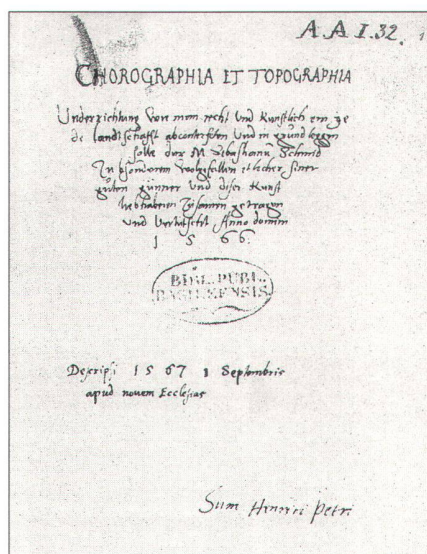 A A I. 32.
CHOROGRAPHIA ET TOPOGRAPHIA
Underrichtung von man recht und Kunstlich ein ye
de landtschafft abconterfeten und in grund legen
solle durch M Sebastianum Schmid
Zu besonderem wolgefallen etlicher siner
guten gunner und diser Kunst
liebhaberen Zusamen getragen
und Anno domini
1 5 6 6.
BIBL. PUBL.
BASILEENSIS.
Descripsi 1 5 6 7 1 Septembris
apud novem Ecclesias
Sum Henrici Petri